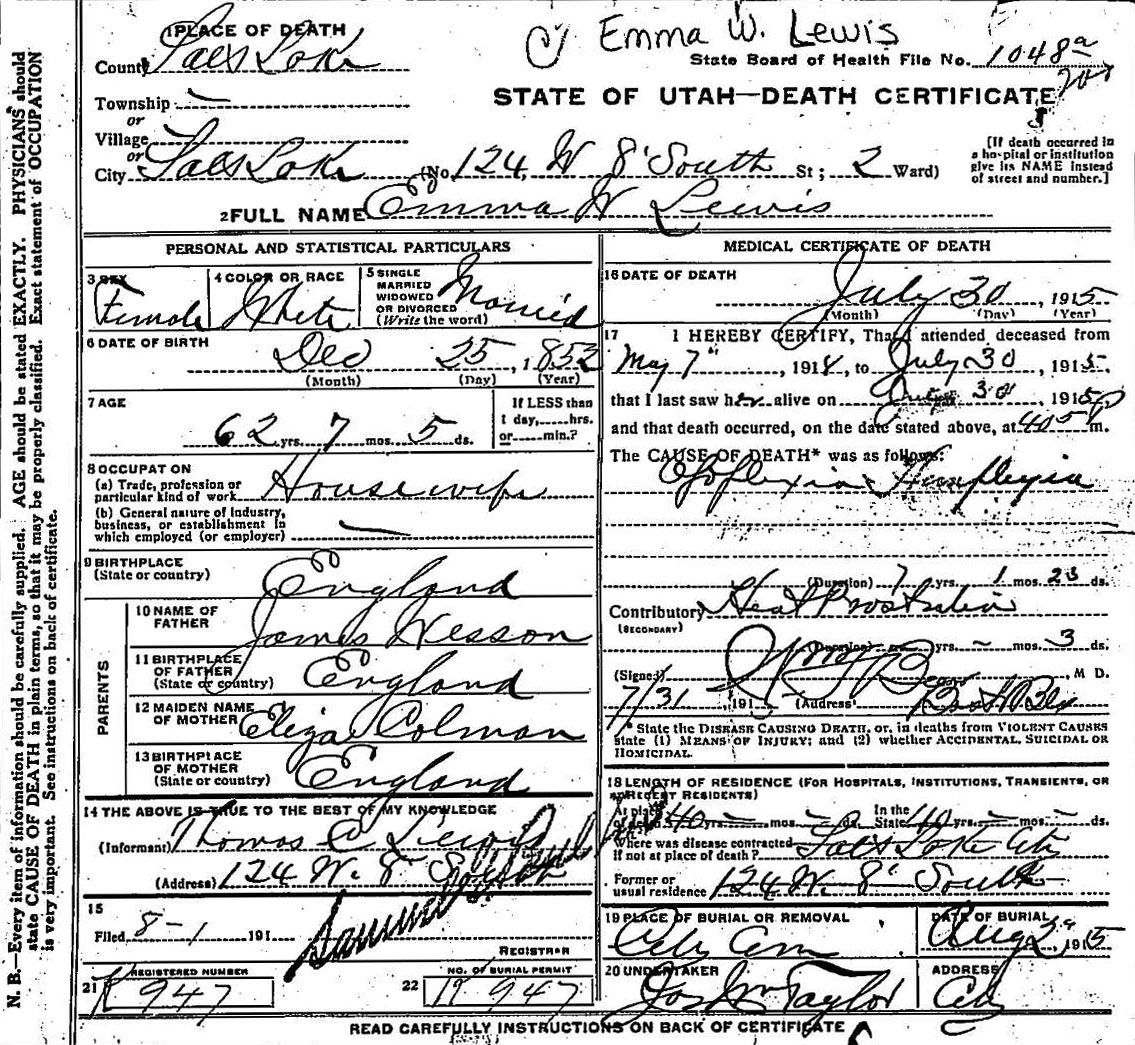 Emma W. Lewis
State Board of Health File No. 1048a
STATE OF UTAH—DEATH CERTIFICATE
1 PLACE OF DEATH
County Salt Lake
Township —
or
Village
or
City Salt Lake (No 124 W 8' South St; 2 Ward)
[If death occurred in
a hospital or institution
give its NAME instead
of street and number.]
2 FULL NAME Emma W Lewis
PERSONAL AND STATISTICAL PARTICULARS
3 SEX Female
4 COLOR OR RACE White
5 SINGLE
MARRIED
WIDOWED
OR DIVORCED
(Write the word) Married
6 DATE OF BIRTH
Dec 25, 1852
(Month) (Day) (Year)
7 AGE
62 yrs. 7 mos. 5 ds.
If LESS than
1 day, ___ hrs.
or ___ min.?
8 OCCUPATION
(a) Trade, profession or
particular kind of work Housewife
(b) General nature of industry,
business, or establishment in
which employed (or employer) —
9 BIRTHPLACE
(State or country) England
PARENTS
10 NAME OF
FATHER James Wesson
11 BIRTHPLACE
OF FATHER
(State or country) England
12 MAIDEN NAME
OF MOTHER Eliza Colman
13 BIRTHPLACE
OF MOTHER
(State or country) England
14 THE ABOVE IS TRUE TO THE BEST OF MY KNOWLEDGE
(Informant) Thomas C Lewis
(Address) 124 W. 8' South
15
Filed 8-1 191
REGISTRAR
21 REGISTERED NUMBER
K 947
22 NO. OF BURIAL PERMIT
K 947
MEDICAL CERTIFICATE OF DEATH
16 DATE OF DEATH
July 30, 1915
(Month) (Day) (Year)
17 I HEREBY CERTIFY, That I attended deceased from
May 7", 1914, to July 30 1915.
that I last saw her alive on July 30 1915
and that death occurred, on the date stated above, at 405 P m.
The CAUSE OF DEATH* was as follows:
Apoplexia Hemiplegia
(Duration) 7 yrs. 1 mos. 23 ds.
Contributory Heat Prostration
(SECONDARY)
(Duration) — yrs. — mos. 3 ds.
(Signed) M D.
7/31, 1915 (Address)
* State the DISEASE CAUSING DEATH, or, in deaths from VIOLENT CAUSES
state (1) MEANS OF INJURY; and (2) whether ACCIDENTAL, SUICIDAL OR
HOMICIDAL.
18 LENGTH OF RESIDENCE (FOR HOSPITALS, INSTITUTIONS, TRANSIENTS, OR
RECENT RESIDENTS)
At place
of death 40 yrs. — mos. — ds. In the
State 40 yrs. — mos. — ds.
Where was disease contracted
if not at place of death? Salt Lake City
Former or
usual residence 124 W. 8' South
19 PLACE OF BURIAL OR REMOVAL
City Cem
DATE OF BURIAL
Aug 2d 1915
20 UNDERTAKER
Jos Wm Taylor
ADDRESS
City
READ CAREFULLY INSTRUCTIONS ON BACK OF CERTIFICATE
N. B.—Every item of information should be carefully supplied. AGE should be stated EXACTLY. PHYSICIANS should
state CAUSE OF DEATH in plain terms, so that it may be properly classified. Exact statement of OCCUPATION
is very important. See instructions on back of certificate.